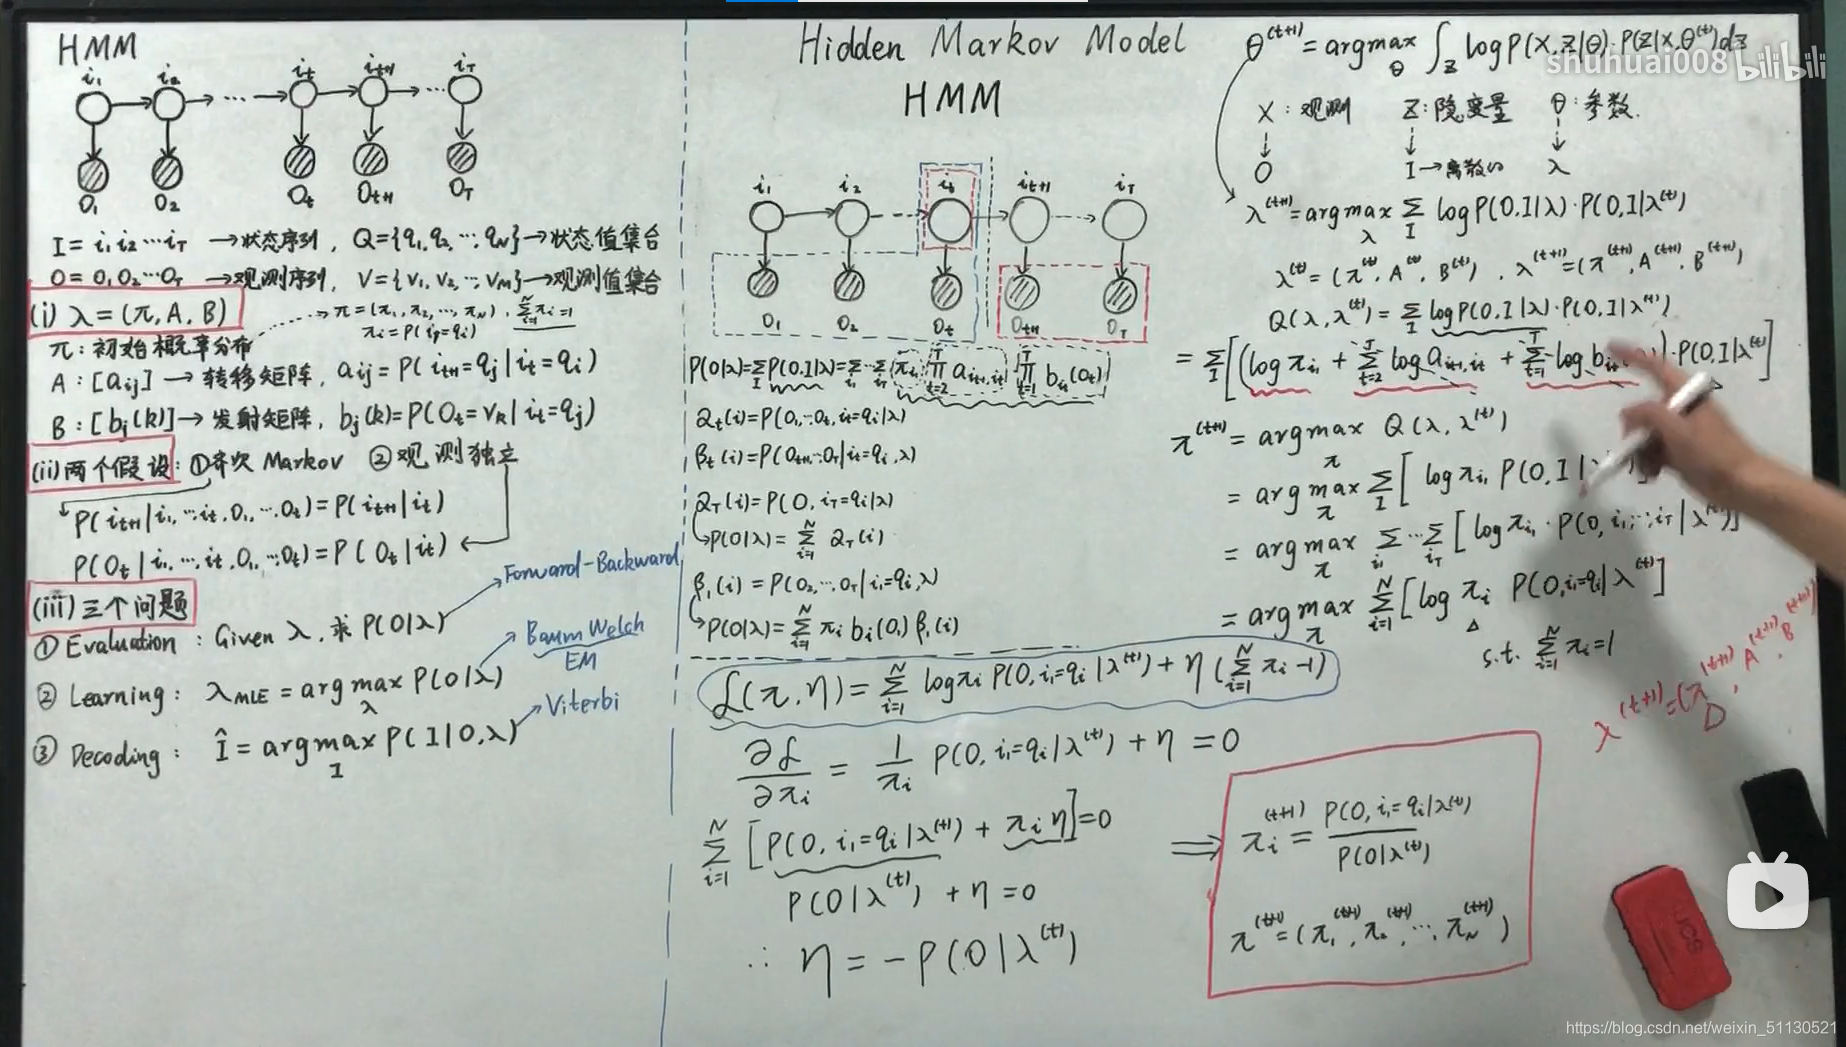 HMM
i₁ i₂ iₜ iₜ₊₁ i_T
... ...
O₁ O₂ Oₜ Oₜ₊₁ O_T
I = i₁ i₂ ⋯ i_T → 状态序列, Q = {q₁, q₂, ⋯, q_N} → 状态值集合
O = O₁ O₂ ⋯ O_T → 观测序列, V = {v₁, v₂, ⋯, v_M} → 观测值集合
(i) λ = (π, A, B)
π = (π₁, π₂, ⋯, π_N), Σ_{i=1}^{N} π_i = 1
π_i = P(i₁=q_i)
π : 初始概率分布
A : [a_ij] → 转移矩阵, a_ij = P(i_{t+1} = q_j | i_t = q_i)
B : [b_j(k)] → 发射矩阵, b_j(k) = P(O_t = v_k | i_t = q_j)
(ii) 两个假设 : ① 齐次 Markov ② 观测独立
P(i_{t+1} | i₁, ⋯ i_t, O₁, ⋯ O_t) = P(i_{t+1} | i_t)
P(O_t | i₁, ⋯, i_t, O₁, ⋯, O_t) = P(O_t | i_t)
(iii) 三个问题
Forward-Backward
① Evaluation : Given λ, 求 P(O|λ)
Baum Welch
EM
② Learning : λ_MLE = arg max_λ P(O|λ)
Viterbi
③ Decoding : Î = arg max_I P(I | O, λ)
Hidden Markov Model
HMM
i₁ i₂ iₜ iₜ₊₁ i_T
O₁ O₂ Oₜ Oₜ₊₁ O_T
P(O|λ) = Σ_I P(O, I|λ) = Σ_{i₁} ⋯ Σ_{i_T} π_{i₁} ∏_{t=2}^{T} a_{i_{t-1}, i_t} ∏_{t=1}^{T} b_{i_t}(O_t)
α_t(i) = P(O₁, ⋯ O_t, i_t = q_i | λ)
β_t(i) = P(O_{t+1}, ⋯ O_T | i_t = q_i, λ)
α_T(i) = P(O, i_T = q_i | λ)
P(O|λ) = Σ_{i=1}^{N} α_T(i)
β₁(i) = P(O₂, ⋯, O_T | i₁ = q_i, λ)
P(O|λ) = Σ_{i=1}^{N} π_i b_i(O₁) β₁(i)
ℒ(π, η) = Σ_{i=1}^{N} log π_i P(O, i₁ = q_i | λ^(t)) + η (Σ_{i=1}^{N} π_i − 1)
∂ℒ/∂π_i = 1/π_i P(O, i₁ = q_i | λ^(t)) + η = 0
Σ_{i=1}^{N} [P(O, i₁ = q_i | λ^(t)) + π_i η] = 0
P(O | λ^(t)) + η = 0
∴ η = − P(O | λ^(t))
θ^(t+1) = arg max_θ ∫_Z log P(X, Z|θ) · P(Z|X, θ^(t)) dz
shuhuai008 bilibili
X : 观测 Z : 隐变量 θ : 参数.
O I → 离散的 λ
λ^(t+1) = arg max_λ Σ_I log P(O, I|λ) · P(O, I|λ^(t))
λ^(t) = (π^(t), A^(t), B^(t)), λ^(t+1) = (π^(t+1), A^(t+1), B^(t+1))
Q(λ, λ^(t)) = Σ_I log P(O, I|λ) · P(O, I|λ^(t))
= Σ_I [(log π_{i₁} + Σ_{t=2}^{T} log a_{i_{t-1}, i_t} + Σ_{t=1}^{T} log b_{i_t} ) · P(O, I|λ^(t))]
π^(t+1) = arg max_π Q(λ, λ^(t))
= arg max_π Σ_I [log π_{i₁} P(O, I |
= arg max_π Σ_{i₁} ⋯ Σ_{i_T} [log π_{i₁} · P(O, i₁, ⋯, i_T | λ^(t))]
= arg max_π Σ_{i=1}^{N} [log π_i P(O, i₁ = q_i | λ^(t))]
s.t. Σ_{i=1}^{N} π_i = 1
λ^(t+1) = (π^(t+1), A^(t+1), B^(t+1))
⟹ π_i^(t+1) = P(O, i₁ = q_i | λ^(t)) / P(O | λ^(t))
π^(t+1) = (π₁^(t+1), π₂^(t+1), ⋯, π_N^(t+1))
https://blog.csdn.net/weixin_51130521